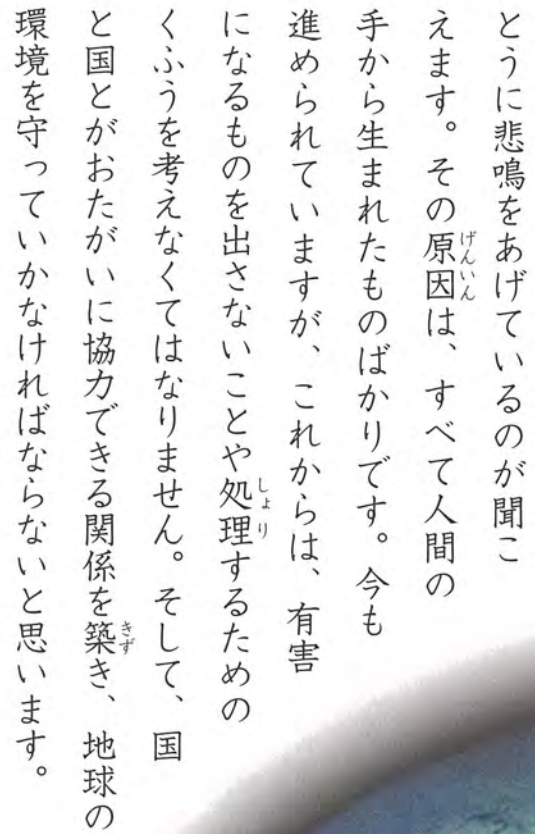 とうに悲鳴をあげているのが聞こ
えます。その原因は、すべて人間の
手から生まれたものばかりです。今も
進められていますが、これからは、有害
になるものを出さないことや処理するための
くふうを考えなくてはなりません。そして、国
と国とがおたがいに協力できる関係を築き、地球の
環境を守っていかなければならないと思います。